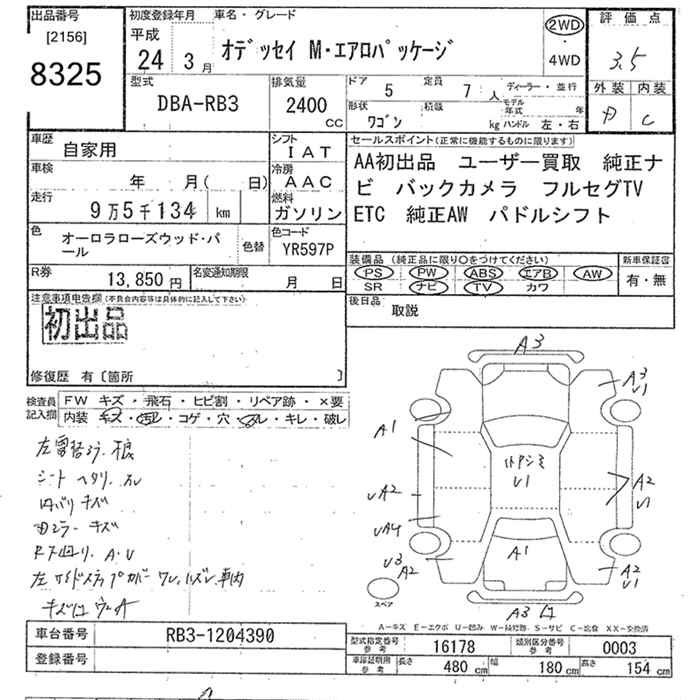 出品番号
[2156]
8325
初度登録年月
平成
24 3月
車名・グレード
オデッセイ M・エアロパッケージ
2WD
・
4WD
評価点
3.5
外装 内装
C
型式
DBA-RB3
排気量
2400
CC
ドア 5 定員 7人
ディーラー・並行
形状 ワゴン 積載 kg
モデル年式 年
ハンドル 左・右
車歴 自家用
シフト IAT
車検 年 月( 日)
冷房 AAC
走行 9万5千134 km
燃料 ガソリン
色 オーロラローズウッド・パール
色替
色コード YR597P
R券 13,850円
名変通知期限 月 日
セールスポイント(正常に機能するものに限ります)
AA初出品 ユーザー買取 純正ナ
ビ バックカメラ フルセグTV
ETC 純正AW パドルシフト
装備品(純正品に限り○をつけてください)
PS PW ABS エアB AW
SR ナビ TV カワ
新車保証書
有・無
後日品 取説
注意事項申告欄(不良合内容等は具体的に記入して下さい)
初出品
修復歴 有〔箇所 〕
検査員記入欄
FW キズ・飛石・ヒビ割・リペア跡・×要
内装・キズ・汚レ・コゲ・穴・スレ・キレ・破レ
シート ヘタリ スレ
内バリ キズ
キズ
R下回り. A.U
A3
A3
U1
A1
U1
A2
U1
UA2
UA4
U3
A2
A1
A2
U1
A3
スペア
A-キズ E-エクボ U-凹み W-補修跡 S-サビ C-腐食 XX-交換済
車台番号 RB3-1204390
登録番号
型式指定番号 参考 16178
類別区分番号 参考 0003
車庫証明用 参考 長さ 480 cm 幅 180 cm 高さ 154 cm